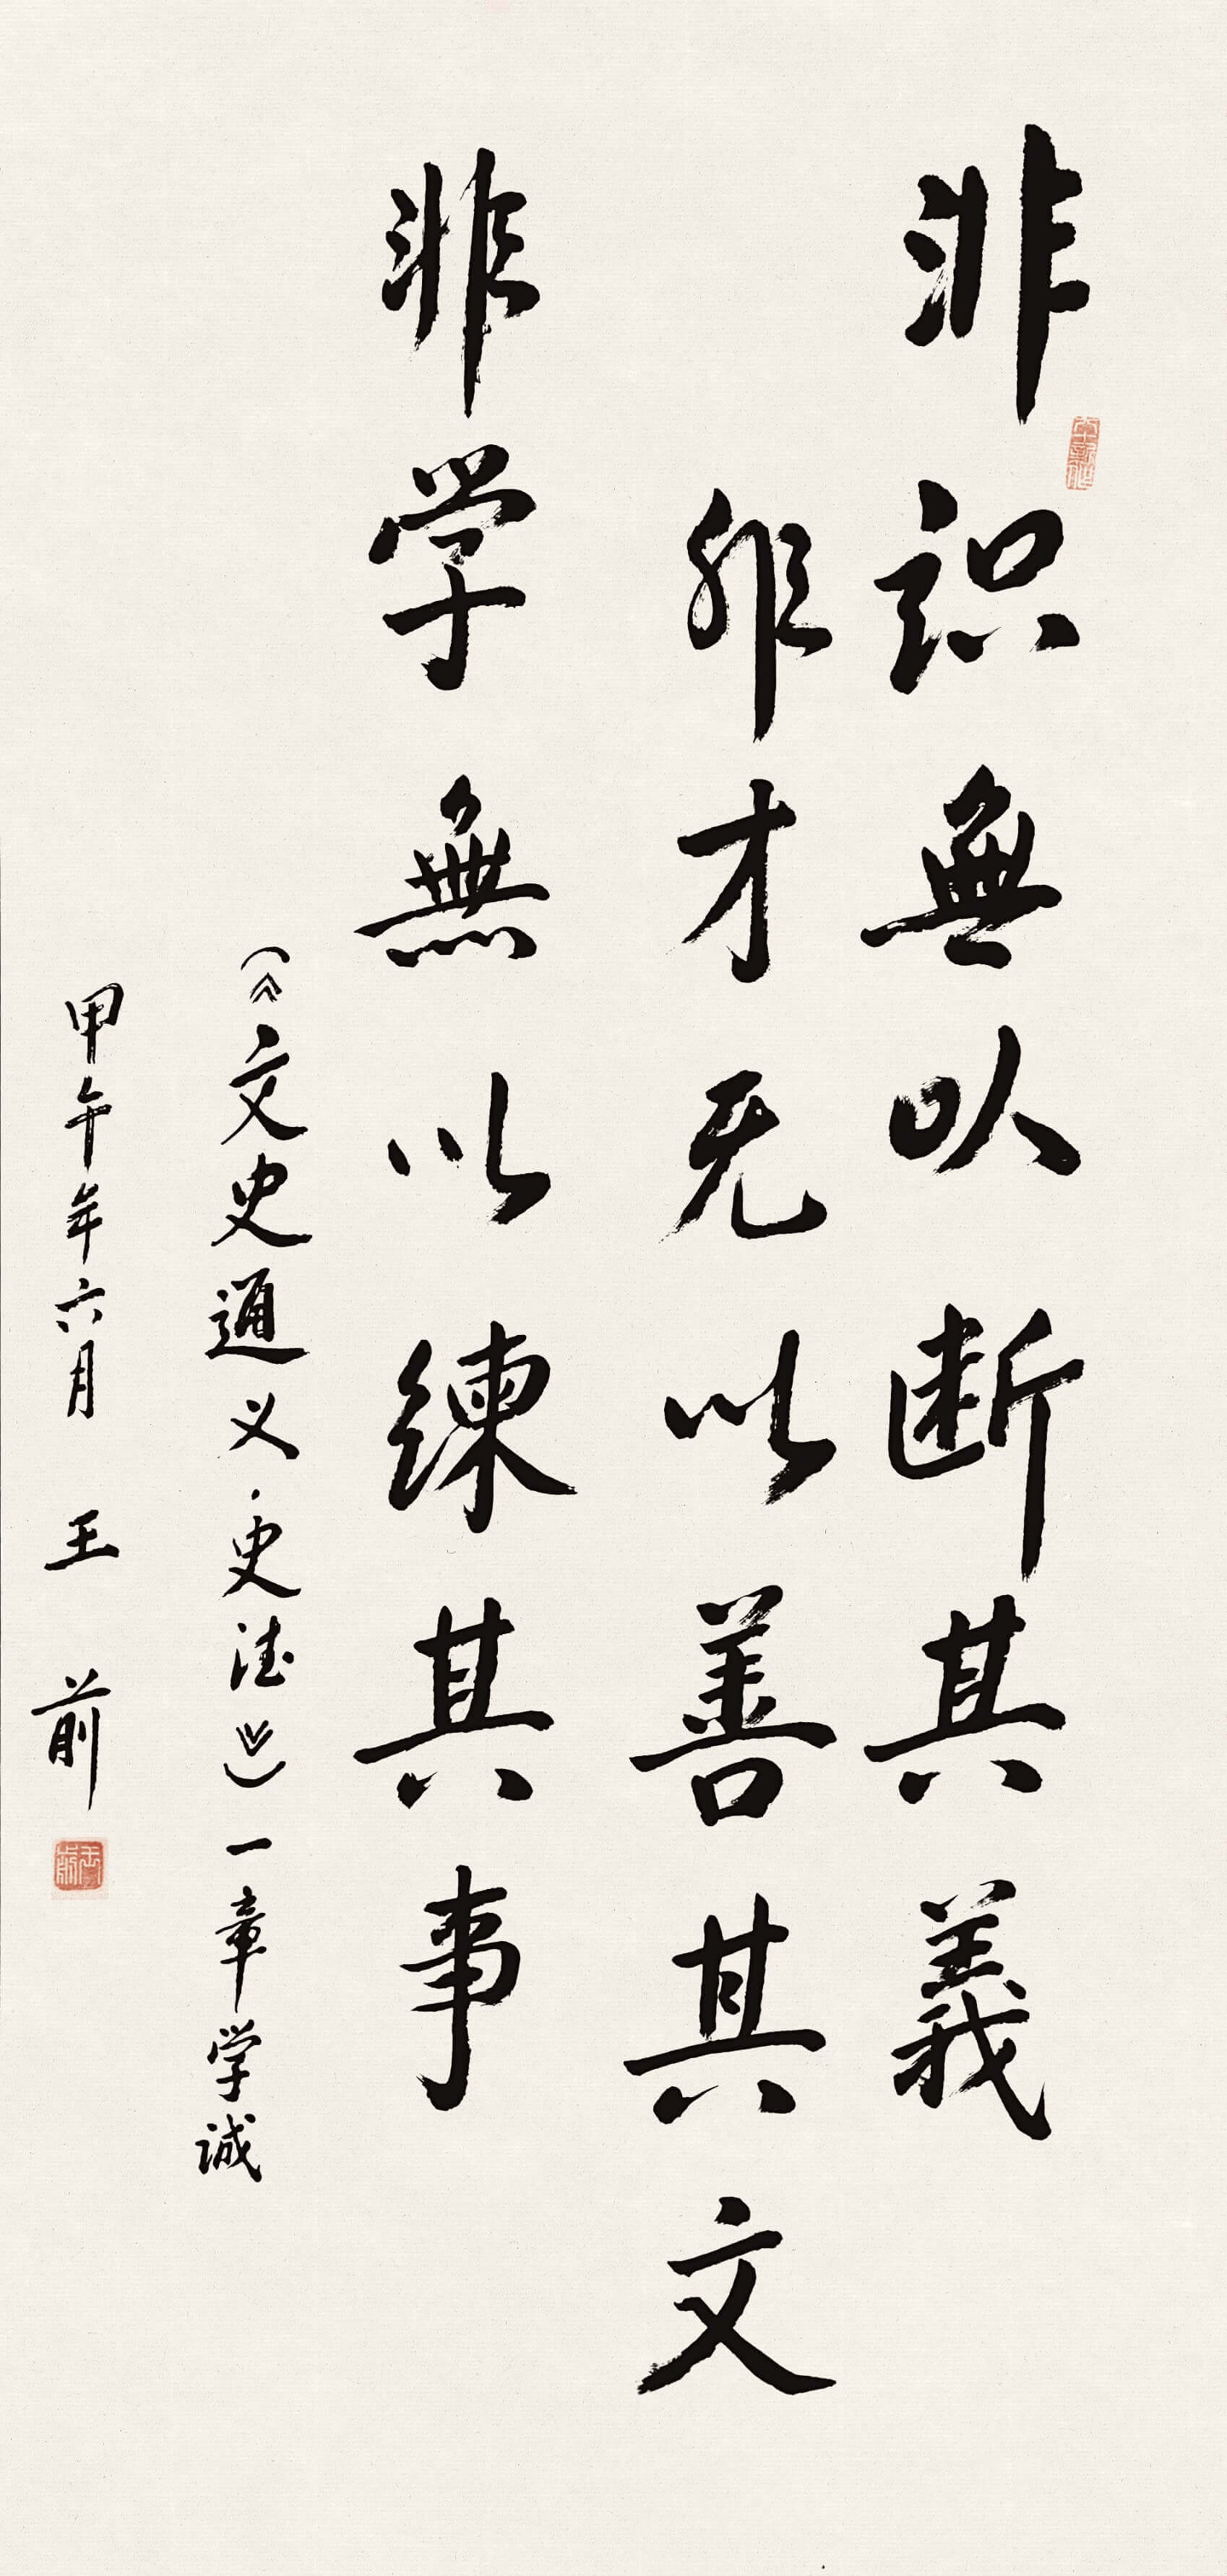 非识無以断其義
非才无以善其文
非学無以練其事
（《文史通义·史德》）一章学诚
甲午年六月 王前
王前